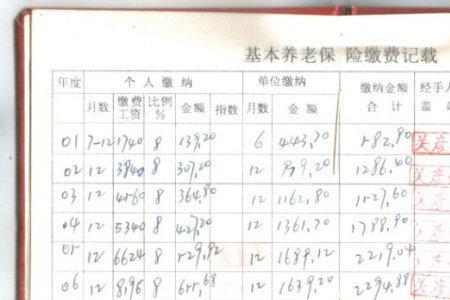 基本养老保 险缴费记载
年度 个人缴纳 单位缴纳 缴纳金额合计 经手人盖
月数 缴费工资 比例% 金额 指数 月数 金额
01 7-12 1740 8 139.20 6 443.70 582.90
02 12 3840 8 307.20 12 979.20 1286.40
03 12 4560 8 364.80 12 1162.80 1527.60
04 12 5340 8 427.20 12 1361.70 1788.90
05 12 6624 8 529.92 12 1689.12 2219.04
06 12 8196 8 655.68 12 1639.20 2294.88